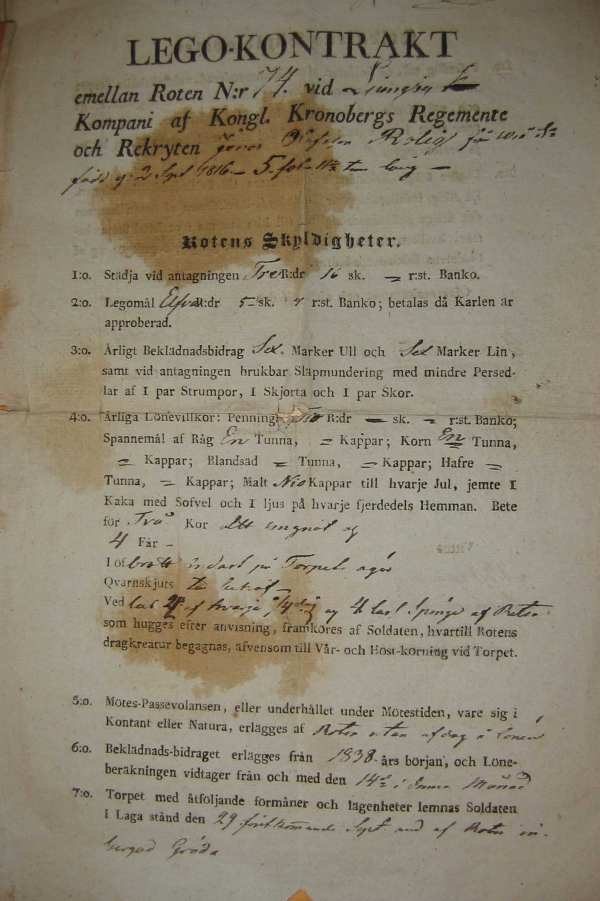 LEGO-KONTRAKT
emellan Roten N:r 74. vid
Kompani af Kongl. Kronobergs Regemente
och Rekryten Rolig
född 2 Sept 1816 — 5. fot lång —
Rotens Skyldigheter.
1:o. Städja vid antagningen Tre R:dr 16 sk. = r:st. Banko.
2:o. Legomål R:dr 5 sk. r:st. Banko; betalas då Karlen är
approberad.
3:o. Årligt Beklädnadsbidrag Sex Marker Ull och Sex Marker Lin,
samt vid antagningen brukbar Släpmundering med mindre Persed-
lar af 1 par Strumpor, 1 Skjorta och 1 par Skor.
4:o. Årliga Lönevillkor: Penning R:dr — sk. = r:st. Banko;
Spannemål af Råg En Tunna, = Kappar; Korn En Tunna,
= Kappar; Blandsäd = Tunna, = Kappar; Hafre =
Tunna, = Kappar; Malt Nio Kappar till hvarje Jul, jemte 1
Kaka med Sofvel och 1 ljus på hvarje fjerdedels Hemman. Bete
för Två Kor Ett ungnöt og
4 Får —
I öf på Torpets ägor
Qvarnskjuts
Ved af hvarje 1/4 og 4 lass af Roten
som hugges efter anvisning, framköres af Soldaten, hvartill Rotens
dragkreatur begagnas, äfvensom till Vår- och Höst-körning vid Torpet.
5:o. Mötes-Passevolansen, eller underhållet under Mötestiden, vare sig i
Kontant eller Natura, erlägges af Roten utan afdrag å Lönen
6:o. Beklädnads-bidraget erlägges från 1838 års början, och Löne-
beräkningen vidtager från och med den 14de i denna Månad
7:o. Torpet med åtföljande förmåner och lägenheter lemnas Soldaten
i Laga stånd den 29 förstkommande Sept af Roten in-
bergad Gröda